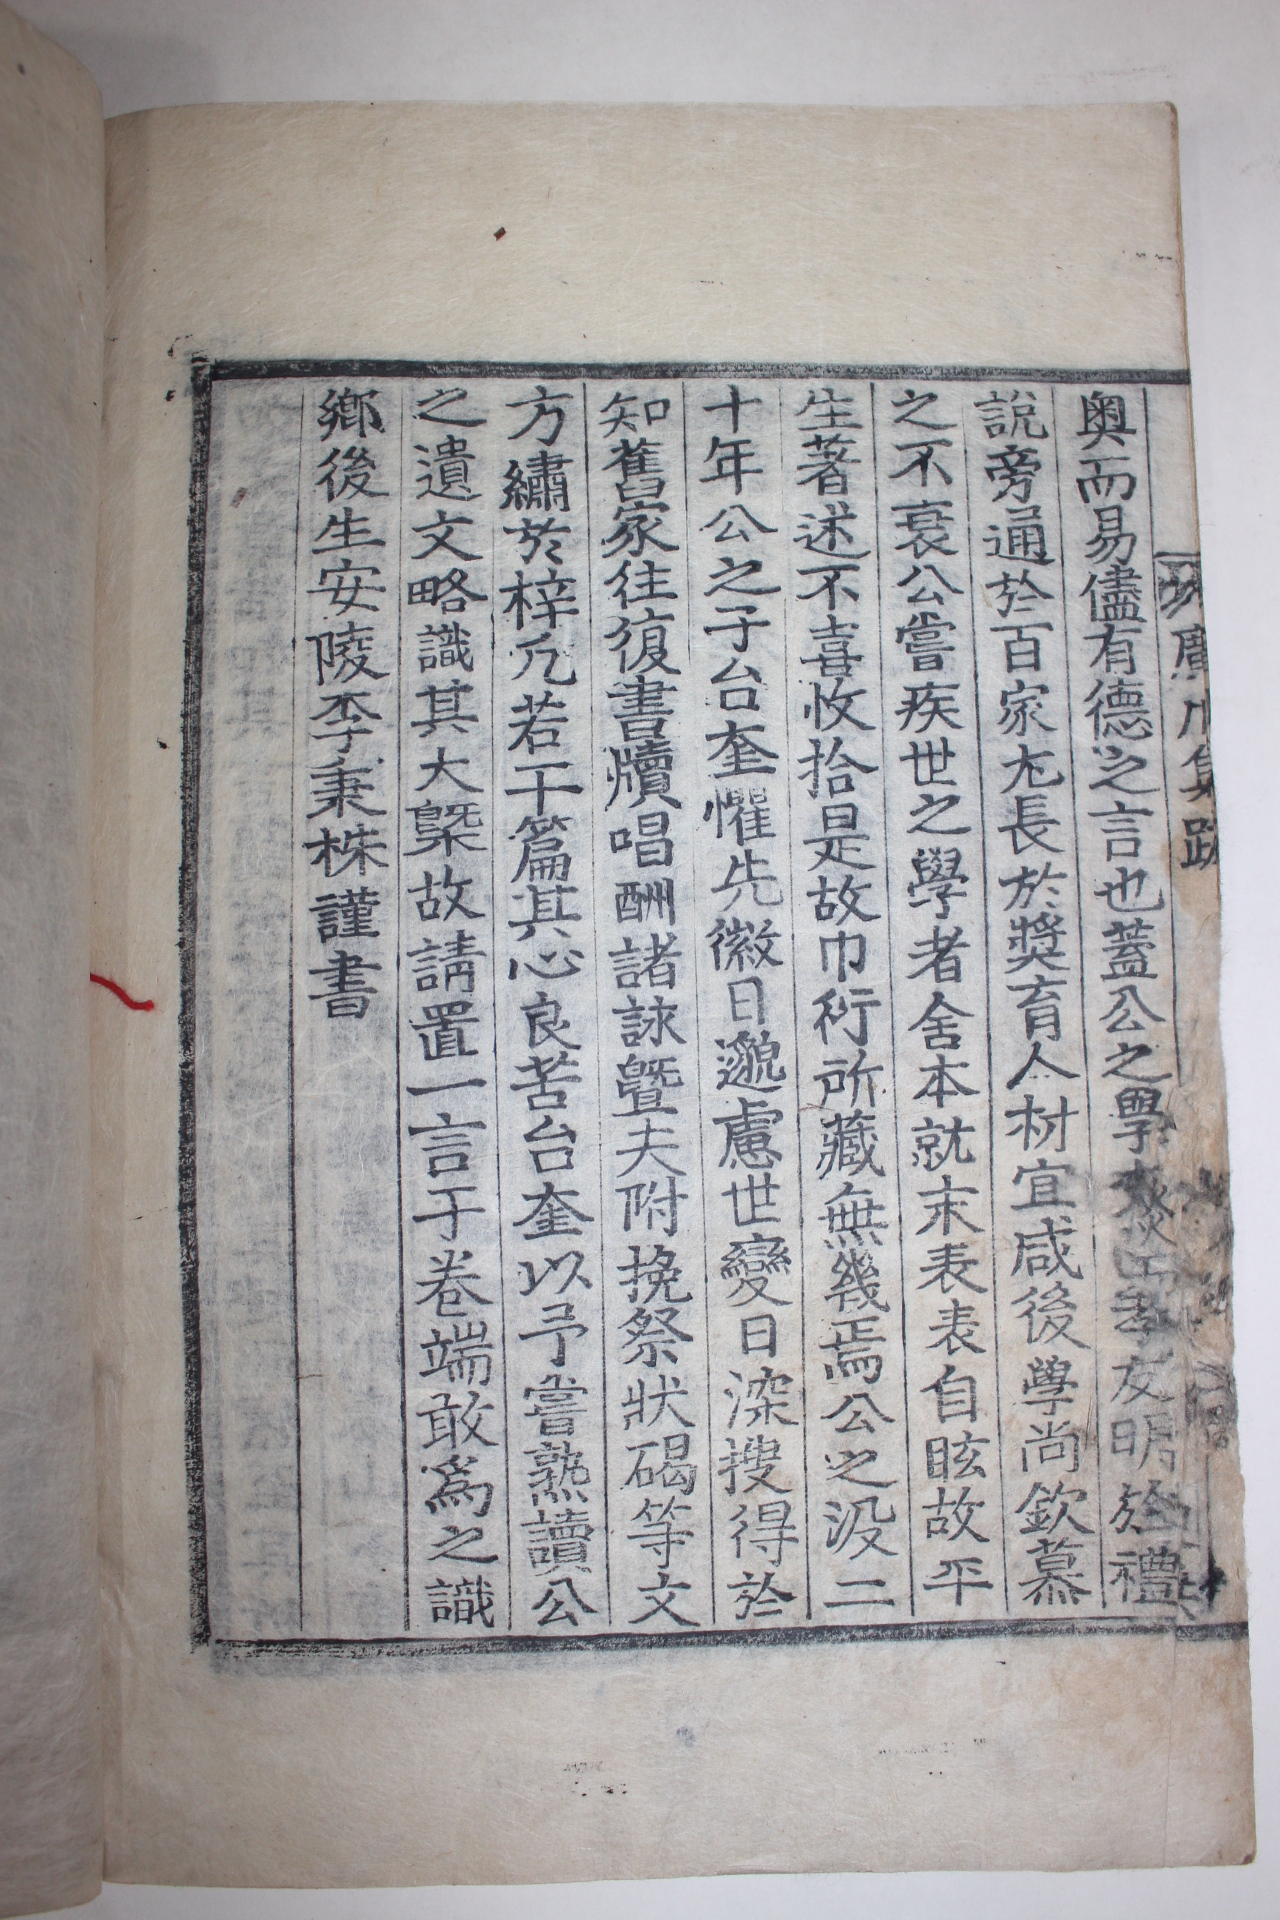 奧而易儘有德之言也蓋公之學孝友明於禮
說旁通於百家尤長於奬育人材宜咸後學尚欽慕
之不衰公嘗疾世之學者舍本就末表表自眩故平
生著述不喜收拾是故巾衍所藏無幾焉公之沒二
十年公之子台奎懼先徽日邈慮世變日深搜得於
知舊家往復書牘唱酬諸詠曁夫附挽祭狀碣等文
方繡於梓凡若干篇其心良苦台奎以予嘗熟讀公
之遺文略識其大槩故請置一言于卷端敢爲之識
鄕後生安陵李秉株謹書
集跋